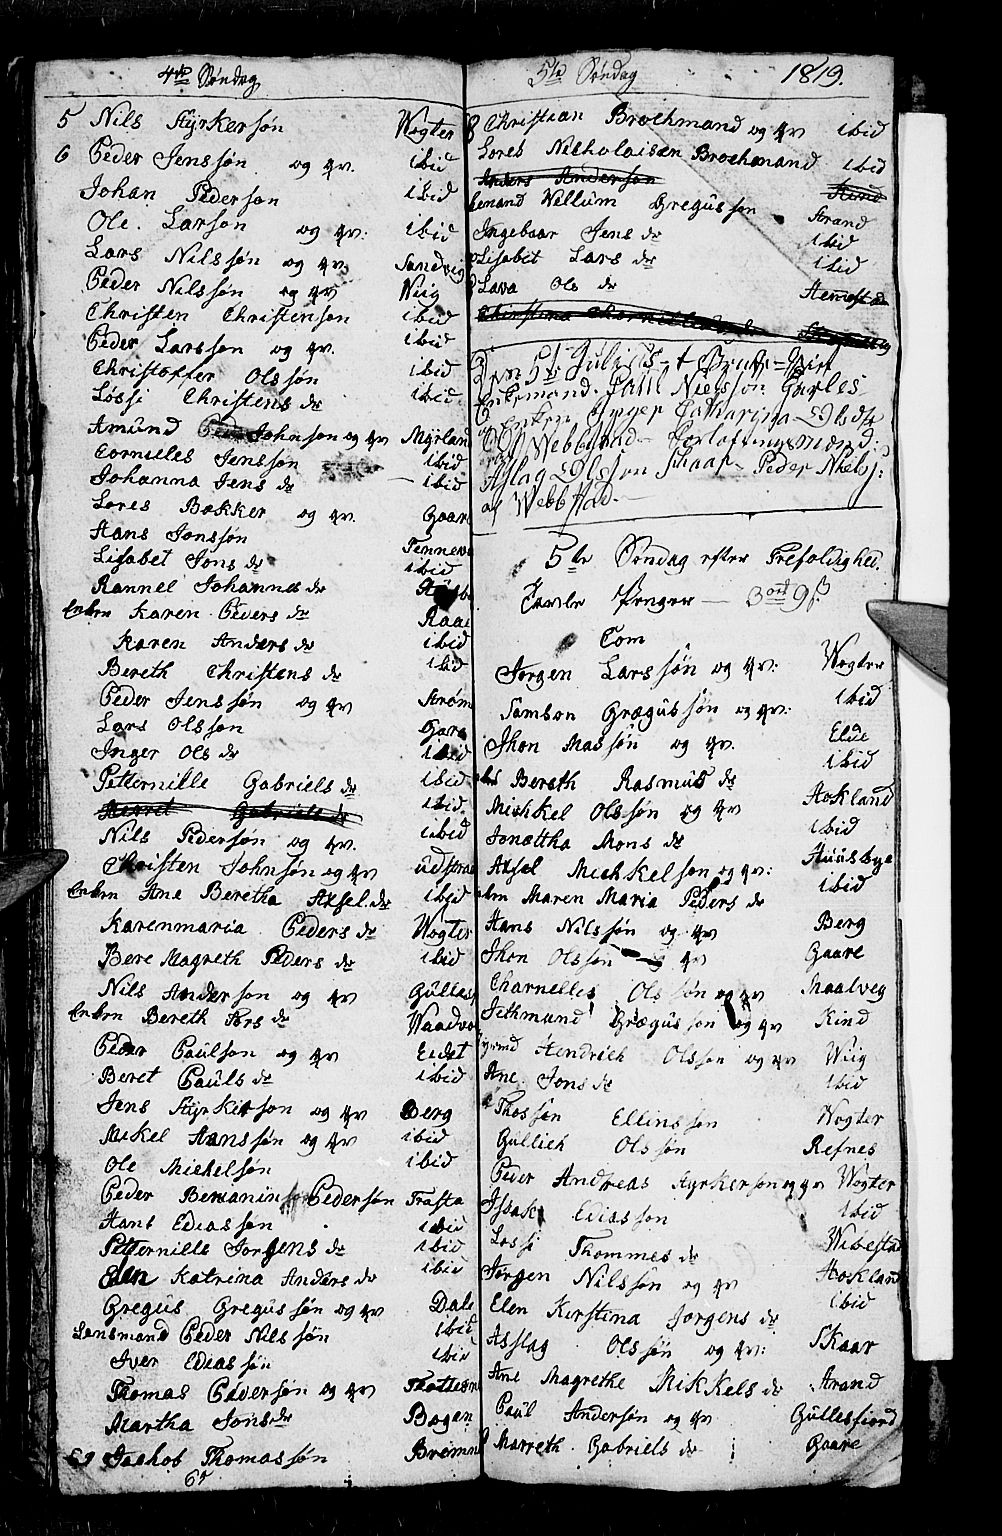 4de Søndag
5 Nils Styrkersøn Wogter
6 Peder Jenssøn og qv. ibid
Johan Pedersøn ibid
Ole Larsøn og qv: ibid
Lars Nilssøn og qv Sandvig
Peder Nilssøn og qv Wiig
Christen Christensøn ibid
Peder Larssøn og qv. ibid
Christoffer Olssøn ibid
Løssi Christens dr ibid
Amund Johnsøn og qv Myrland
Cornilles Jenssøn ibid
Johanna Jens dr ibid
Lores Bakker og qv. Gaare
Hans Jonssøn
Lisabet Jons dr ibid
Rannel Johannes dr
Enken Karen Peders dr
Karen Anders dr ibid
Bereth Christens dr ibid
Peder Jenssøn og qv Strøm
Lars Olssøn Gara
Inger Ols dr ibid
Petternille Gabriels dr ibid
Merret Gabriels dr ibid
Nils Pedersøn og qv. ibid
Christen Johnsøn og qv udstran
Enken Ane Beretha Axsel dr ibid
Karenmaria Peders dr Wogter
Bere Magreth Peders dr ibid
Nils Andersøn og qv Gullesf
Enken Bereth Pers dr
Peder Paulsøn og qv Eidet
Beret Pauls dr ibid
Jens Styrkersøn og qv Berg
Mikel Hanssøn og qv ibid
Ole Michelsøn ibid
Peder Bemanin Pedersøn Trasta
Hans Ediassøn ibid
Petternille Jorgens dr ibid
Elen Katrina Anders dr ibid
Gregus Gregussøn og qv Dale
Lensmand Peder Nilssøn ibid
Iver Ediassøn ibid
Thomas Pedersøn og qv
Martha Jons dr Bogen
69 Jaakob Thomassøn Bremn
65
5te Søndag 1819.
Christian Brochmand og qv ibid
Lores Nicholaisen Brochmand ibid
Anders Andersøn Kind
Willum Gregussøn Strand
Ingebaar Jens dr ibid
Lisabet Lars dr ibid
Lava Ols dr Hemestad
Den 5te Julius
Enkemand. Paul Nielssøn
Enken Catharina Olsdtr
Forlofningsmænd:
Aslag Olssøn Skaar Peder Nielsf:
af Webbstad
5te Søndag efter Trefoldighed.
Tavle Penger 3 ort 9 ß
Com
Jorgen Larssøn og qv: Wogter
Samson Grægussøn og qv: ibid
Jhon Massøn og qv. Elde
Bereth Rasmus dr ibid
Michkel Olssøn og qv Hokland
Jonættha Mons dr ibid
Axsel Michkelsøn og qv: Huusbye
Maren Maria Peders dr ibid
Hans Nilssøn og qv Berg
Jhon Olssøn og qv Gaare
Charnelles Olssøn og qv Maalveg
Jethmund Grægussøn og qv Kind
Hendrich Olssøn og qv Wiig
Ane Jons dr ibid
Thossen Ellinssøn Wogter
Gullich Olssøn Refnes
Peder Andreas Styrkersøn og qv Wogter
Issak Ediassøn ibid
Lossi Thommes dr Webestad
Jørgen Nilssøn og qv Hokland
Elen Kirstina Jorgens dr ibid
Asslag Olssøn og qv: Skaar
Ane Magrethe Mikkels dr Strand
Paul Andersøn og qv Gullesfiord
Marreth Gabriels dr Gaare